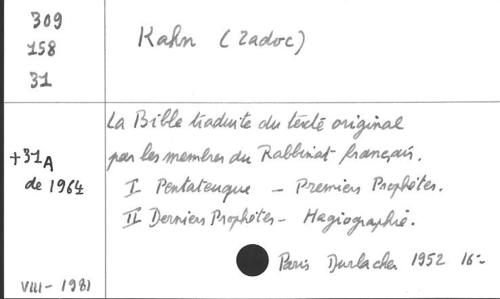 309
158
31
Kahn (Zadoc)
La Bible traduite du texte original
par les membres du Rabbinat français.
I Pentateuque - Premiers Prophètes.
II Derniers Prophètes - Hagiographie.
Paris Durlacher 1952 16-
+31A
de 1964
VIII-1981